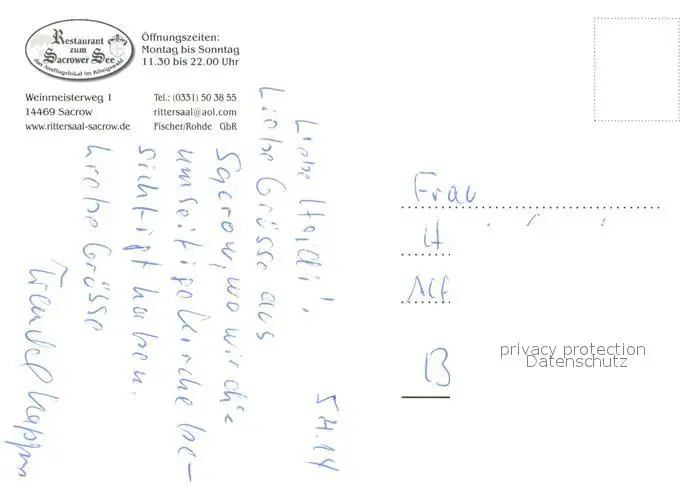 Restaurant
zum
Sacrower See
das Ausflugslokal im Königswald
Öffnungszeiten:
Montag bis Sonntag
11.30 bis 22.00 Uhr
Weinmeisterweg 1
14469 Sacrow
www.rittersaal-sacrow.de
Tel.: (0331) 50 38 55
rittersaal@aol.com
Fischer/Rohde GbR
5.4.14
Liebe Heidi!
Liebe Grüsse aus
Sacrow, wo wir die
umseitige Kirche be-
sichtigt haben.
Liebe Grüsse
Frau
H
Alf
B
privacy protection
Datenschutz